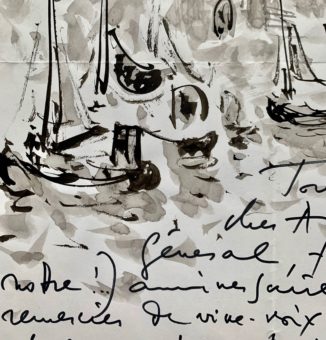 Tou
cher A
général
notre!) anniversaire
remercier de vive-voix